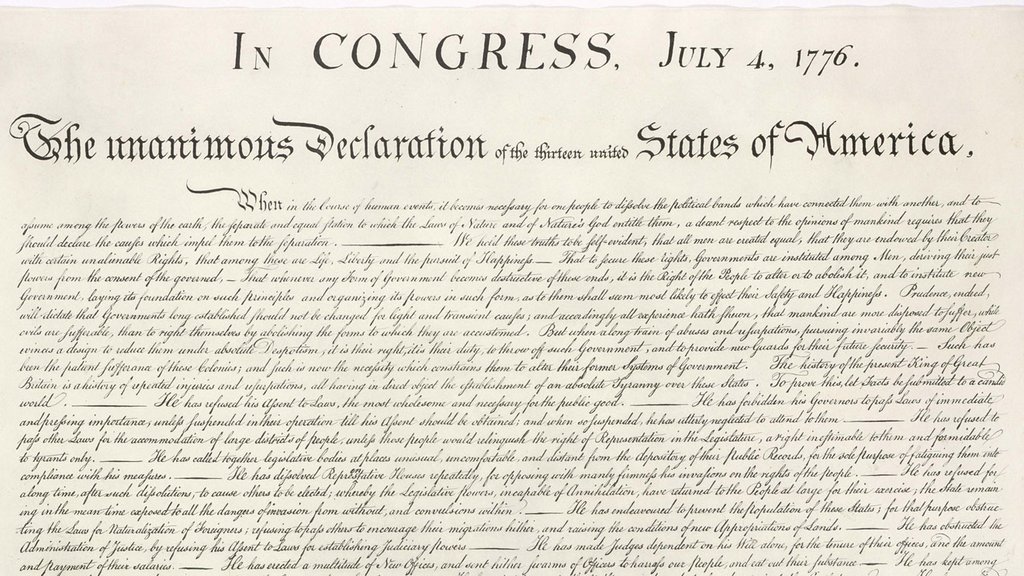 IN CONGRESS, JULY 4, 1776.
The unanimous Declaration of the thirteen united States of America,
When in the Course of human events, it becomes necessary for one people to dissolve the political bands which have connected them with another, and to
assume among the powers of the earth, the separate and equal station to which the Laws of Nature and of Nature's God entitle them, a decent respect to the opinions of mankind requires that they
should declare the causes which impel them to the separation. — We hold these truths to be self-evident, that all men are created equal, that they are endowed by their Creator
with certain unalienable Rights, that among these are Life, Liberty and the pursuit of Happiness — That to secure these rights, Governments are instituted among Men, deriving their just
powers from the consent of the governed, — That whenever any Form of Government becomes destructive of these ends, it is the Right of the People to alter or to abolish it, and to institute new
Government, laying its foundation on such principles and organizing its powers in such form, as to them shall seem most likely to effect their Safety and Happiness. Prudence, indeed,
will dictate that Governments long established should not be changed for light and transient causes; and accordingly all experience hath shewn, that mankind are more disposed to suffer, while
evils are sufferable, than to right themselves by abolishing the forms to which they are accustomed. But when a long train of abuses and usurpations, pursuing invariably the same Object
evinces a design to reduce them under absolute Despotism, it is their right, it is their duty, to throw off such Government, and to provide new Guards for their future security. — Such has
been the patient sufferance of these Colonies; and such is now the necessity which constrains them to alter their former Systems of Government. The history of the present King of Great
Britain is a history of repeated injuries and usurpations, all having in direct object the establishment of an absolute Tyranny over these States. To prove this, let Facts be submitted to a candid
world. — He has refused his Assent to Laws, the most wholesome and necessary for the public good. — He has forbidden his Governors to pass Laws of immediate
and pressing importance, unless suspended in their operation till his Assent should be obtained; and when so suspended, he has utterly neglected to attend to them. — He has refused to
pass other Laws for the accommodation of large districts of people, unless those people would relinquish the right of Representation in the Legislature, a right inestimable to them and formidable
to tyrants only. — He has called together legislative bodies at places unusual, uncomfortable, and distant from the depository of their public Records, for the sole purpose of fatiguing them into
compliance with his measures. — He has dissolved Representative Houses repeatedly, for opposing with manly firmness his invasions on the rights of the people. — He has refused for
a long time, after such dissolutions, to cause others to be elected; whereby the Legislative powers, incapable of Annihilation, have returned to the People at large for their exercise; the State remain
ing in the mean time exposed to all the dangers of invasion from without, and convulsions within. — He has endeavoured to prevent the population of these States; for that purpose obstruc
ting the Laws for Naturalization of Foreigners; refusing to pass others to encourage their migrations hither, and raising the conditions of new Appropriations of Lands. — He has obstructed the
Administration of Justice, by refusing his Assent to Laws for establishing Judiciary powers — He has made Judges dependent on his Will alone, for the tenure of their offices, and the amount
and payment of their salaries. — He has erected a multitude of New Offices, and sent hither swarms of Officers to harass our people, and eat out their substance. — He has kept among